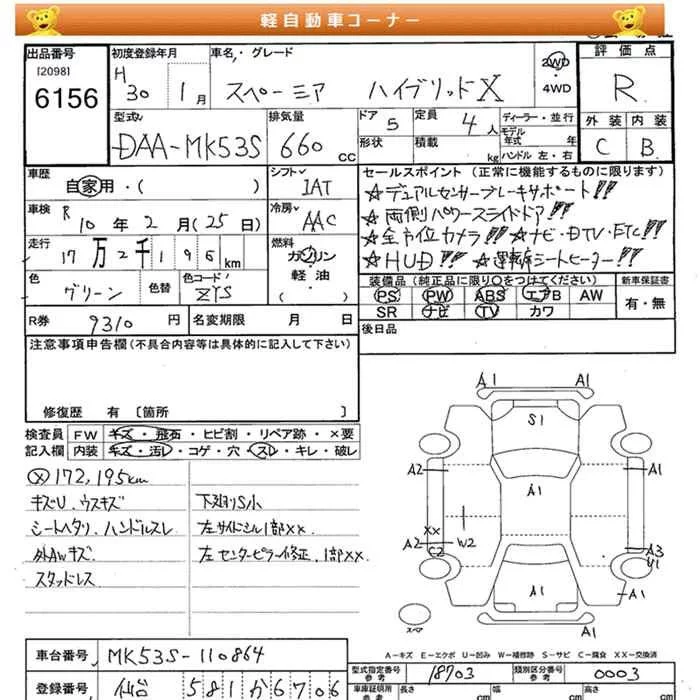 軽自動車コーナー
出品番号
[2098]
6156
初度登録年月
H 30 1月
車名・グレード
スペーシア ハイブリッドX
2WD
・
4WD
評価点
R
外装 内装
C B
型式
DAA-MK53S
排気量
660 cc
ドア 5
形状
定員 4人
積載 kg
ディーラー・並行
モデル年式 年
ハンドル 左・右
車歴
自家用・( )
シフト
IAT
車検 R 10年 2月(25日)
冷房
AAC
走行
17万2千195km
燃料
ガソリン
軽・油
( )
色
グリーン
色替
色コード
ZYS
R券 9310円
名変期限 月 日
セールスポイント (正常に機能するものに限ります)
☆デュアルセンサーブレーキサポート!!
☆両側パワースライドドア!!
☆全方位カメラ!! ☆ナビ・DTV・ETC!!
☆HUD!! ☆運転席シートヒーター!!
装備品 (純正品に限り○をつけてください)
新車保証書
PS PW ABS エアB AW
有・無
SR ナビ TV カワ
後日品
注意事項申告欄(不具合内容等は具体的に記入して下さい)
修復歴 有 〔箇所 〕
検査員記入欄
FW キズ・飛石・ヒビ割・リペア跡・×要
内装 キズ・汚レ・コゲ・穴・スレ・キレ・破レ
ⓧ172,195km
キズU、ウスキズ
シートヘタリ、ハンドルスレ
外AWキズ
スタッドレス
下廻りS小
左サイドシル1部XX.
左センターピラー修正、1部XX.
A1 A1
S1
A1
A2 A1
XX
A2 C2 W2
A3
U1
A1
A1
A1
スペア
A-キズ E-エクボ U-凹み W-補修跡 S-サビ C-腐食 XX-交換済
車台番号 MK53S-110864
登録番号 仙台 581か6706
型式指定番号
参考
18703
類別区分番号
参考
0003
車庫証明用
参考
長さ cm
幅 cm
高さ cm